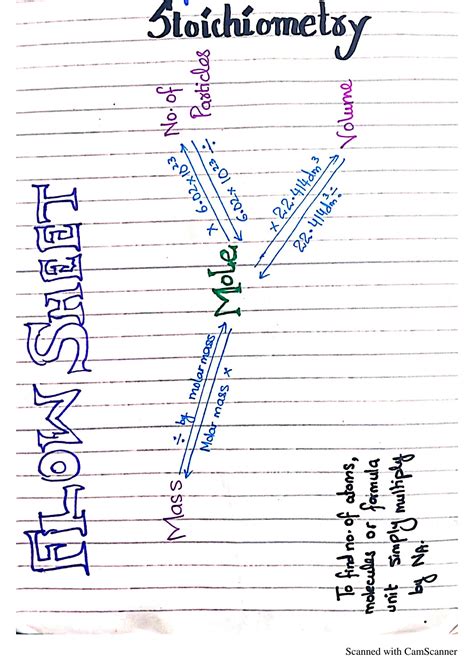 Stoichiometry
FLOW SHEET
No. of
Particles
Volume
× 6.02×10²³
6.02×10²³ ÷
× 22.414dm³
22.414dm³ ÷
Mole
÷ by molar mass
Molar mass ×
Mass
To find no. of atoms,
molecules or formula
unit simply multiply
by NA.
Scanned with CamScanner